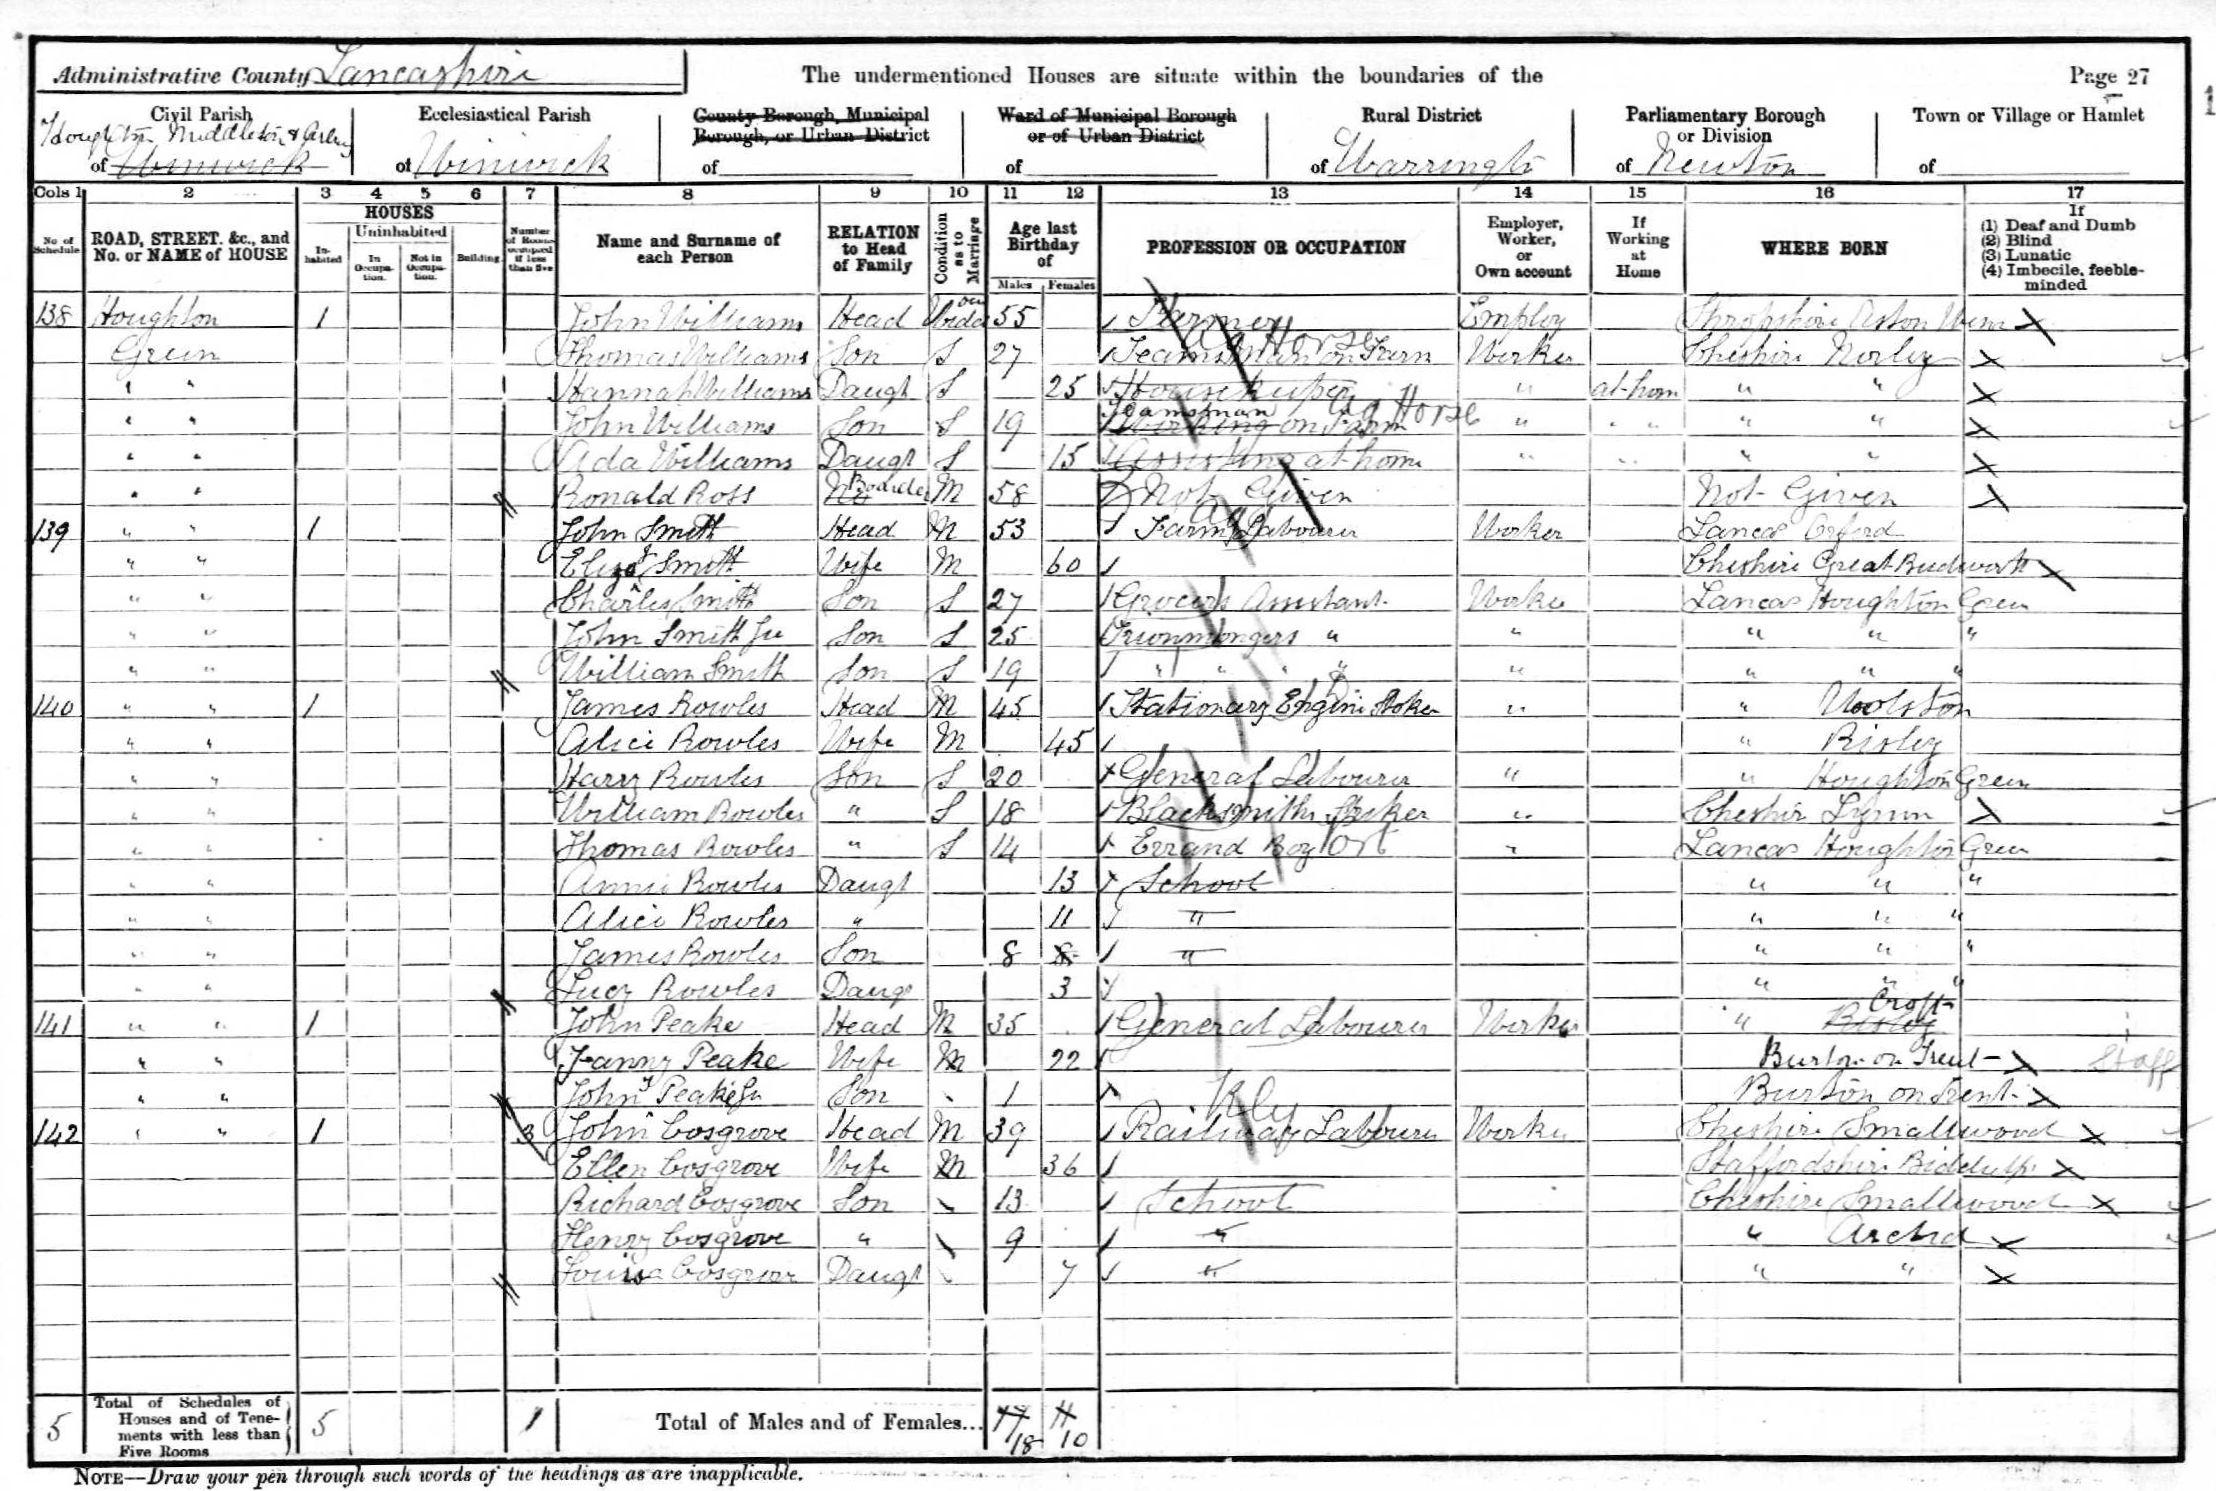 Administrative County Lancashire
The undermentioned Houses are situate within the boundaries of the
Page 27
Civil Parish Houghton Middleton & Arbury of Winwick
Ecclesiastical Parish of Winwick
County Borough, Municipal Borough, or Urban District of
Ward of Municipal Borough or of Urban District of
Rural District of Warrington
Parliamentary Borough or Division of Newton
Town or Village or Hamlet of
Cols 1 2 3 4 5 6 7 8 9 10 11 12 13 14 15 16 17
No of Schedule
ROAD, STREET, &c., and No. or NAME of HOUSE
HOUSES
Inhabited
Uninhabited
In Occupation.
Not in Occupation.
Building
Number of Rooms occupied if less than five
Name and Surname of each Person
RELATION to Head of Family
Condition as to Marriage
Age last Birthday of
Males Females
PROFESSION OR OCCUPATION
Employer, Worker, or Own account
If Working at Home
WHERE BORN
If
(1) Deaf and Dumb
(2) Blind
(3) Lunatic
(4) Imbecile, feeble-minded
138 Houghton 1 John Williams Head Widower 55 Farmer Employ Shropshire Aston Wem
Green Thomas Williams Son S 27 Teamsman on Farm Horse Worker Cheshire Norley
" " Hannah Williams Daugt S 25 Housekeeper " at hom " "
" " John Williams Son S 19 Teamsman Working on Farm Ag Horse " " " " "
" " Ada Williams Daugt S 15 Assisting at home " " " " "
" " Ronald Ross Boarder M 58 Not Given Not Given
139 " " 1 John Smith Head M 53 Farm Labourer Ag Worker Lancas Orford
" " Eliza Smith Wife M 60 Cheshire Great Budworth
" " Charles Smith Son S 27 Grocers Assistant Worker Lancas Houghton Green
" " John Smith Ju Son S 25 Ironmongers " " " " "
" " William Smith Son S 19 " " " " " " " "
140 " " 1 James Rowles Head M 45 Stationary Engine Stoker " " Woolston
" " Alice Rowles Wife M 45 " Risley
" " Harry Rowles Son S 20 General Labourer " " Houghton Green
" " William Rowles " S 18 Blacksmiths Striker " Cheshire Lymm
" " Thomas Rowles " S 14 Errand Boy " Lancas Houghton Green
" " Annie Rowles Daugt 13 School " " "
" " Alice Rowles " 11 " " " "
" " James Rowles Son 8 8 " " " "
" " Lucy Rowles Daugt 3 " " "
141 " " 1 John Peake Head M 35 General Labourer Worker " Risley Croft
" " Fanny Peake Wife M 22 Burton on Trent Staff
" " John Peake Ju Son 1 Burton on Trent
142 " " 1 3 John Cosgrove Head M 39 Railway Labourer Rly Worker Cheshire Smallwood
Ellen Cosgrove Wife M 36 Staffordshire Biddulph
Richard Cosgrove Son 13 School Cheshire Smallwood
Henry Cosgrove " 9 " " Arclid
Louisa Cosgrove Daugt 7 " " "
5 Total of Schedules of Houses and of Tenements with less than Five Rooms 5 1 Total of Males and of Females... 17 18 11 10
NOTE—Draw your pen through such words of the headings as are inapplicable.